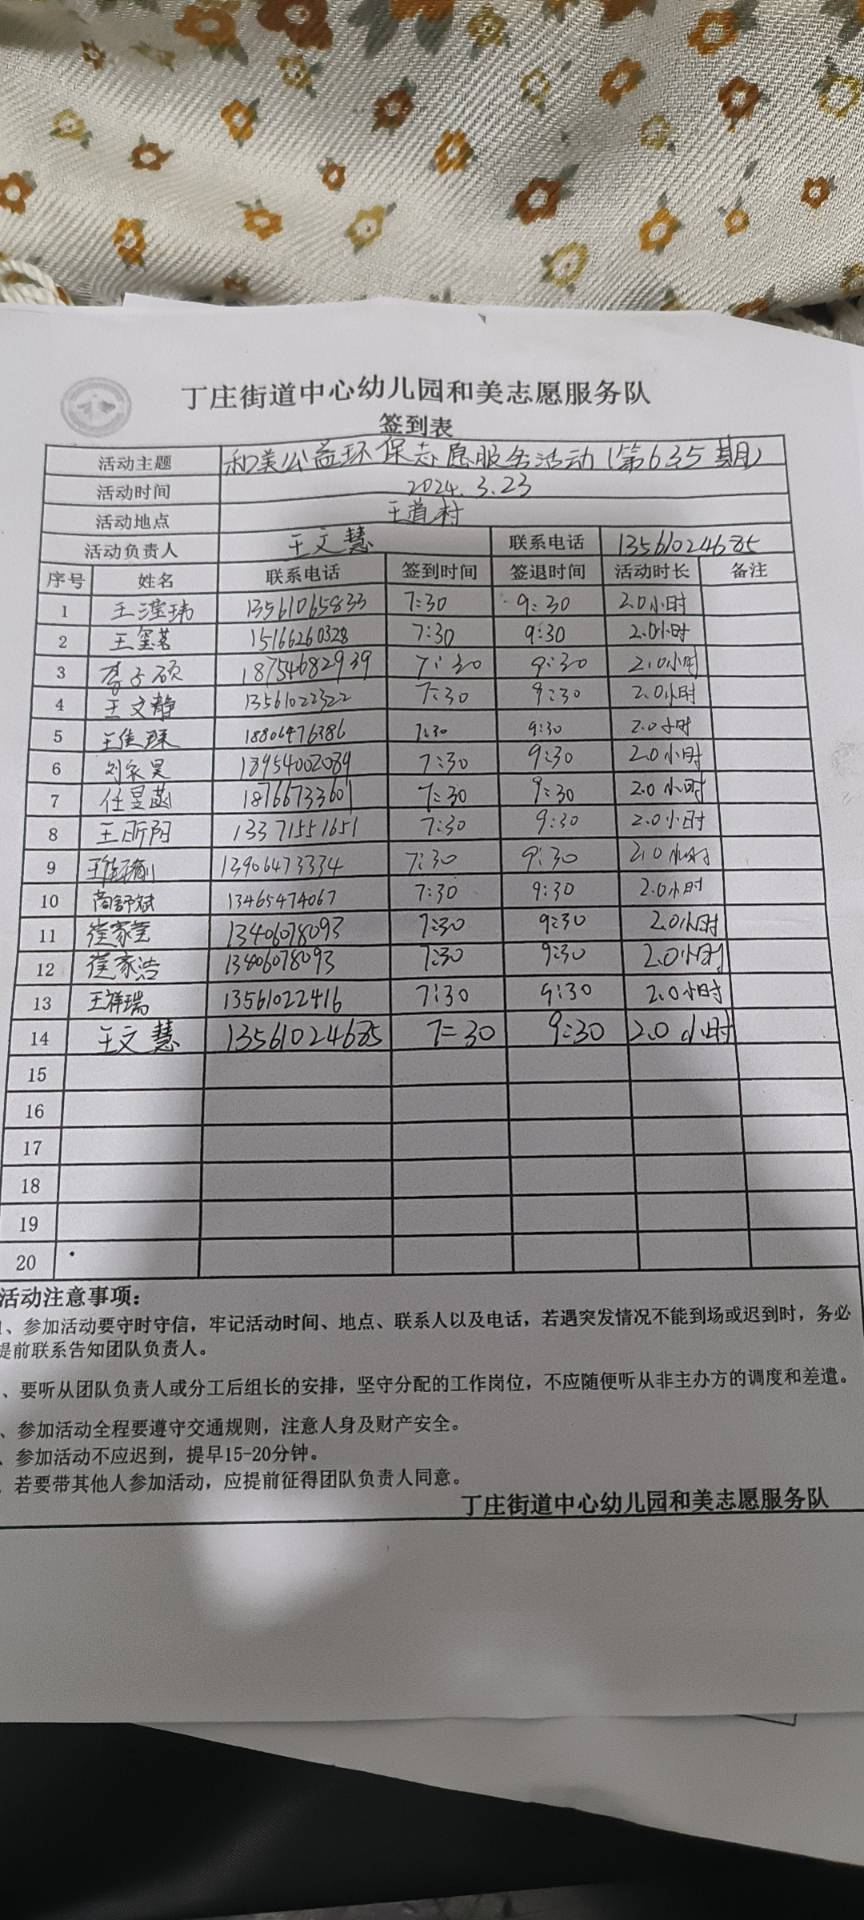 丁庄街道中心幼儿园和美志愿服务队
签到表
活动主题 和美公益环保志愿服务活动(第635期)
活动时间 2024.3.23
活动地点 王道村
活动负责人 王文慧 联系电话 13561024685
序号 姓名 联系电话 签到时间 签退时间 活动时长 备注
1 13561065833 7:30 9:30 2.0小时
2 王玺茗 15166260328 7:30 9:30 2.0小时
3 李子硕 18754682939 7:30 9:30 2.0小时
4 王文静 13561022322 7:30 9:30 2.0小时
5 王佳琛 18806476386 7:30 9:30 2.0小时
6 刘家昊 18954002089 7:30 9:30 2.0小时
7 任昱菡 18766733601 7:30 9:30 2.0小时
8 王昕阳 13371551651 7:30 9:30 2.0小时
9 13906473334 7:30 9:30 2.0小时
10 商舒斌 13465474067 7:30 9:30 2.0小时
11 13406078093 7:30 9:30 2.0小时
12 崔家浩 13406078093 7:30 9:30 2.0小时
13 王祥瑞 13561022416 7:30 9:30 2.0小时
14 王文慧 13561024685 7:30 9:30 2.0小时
15
16
17
18
19
20
活动注意事项:
、参加活动要守时守信，牢记活动时间、地点、联系人以及电话，若遇突发情况不能到场或迟到时，务必
提前联系告知团队负责人。
、要听从团队负责人或分工后组长的安排，坚守分配的工作岗位，不应随便听从非主办方的调度和差遣。
、参加活动全程要遵守交通规则，注意人身及财产安全。
、参加活动不应迟到，提早15-20分钟。
、若要带其他人参加活动，应提前征得团队负责人同意。
丁庄街道中心幼儿园和美志愿服务队